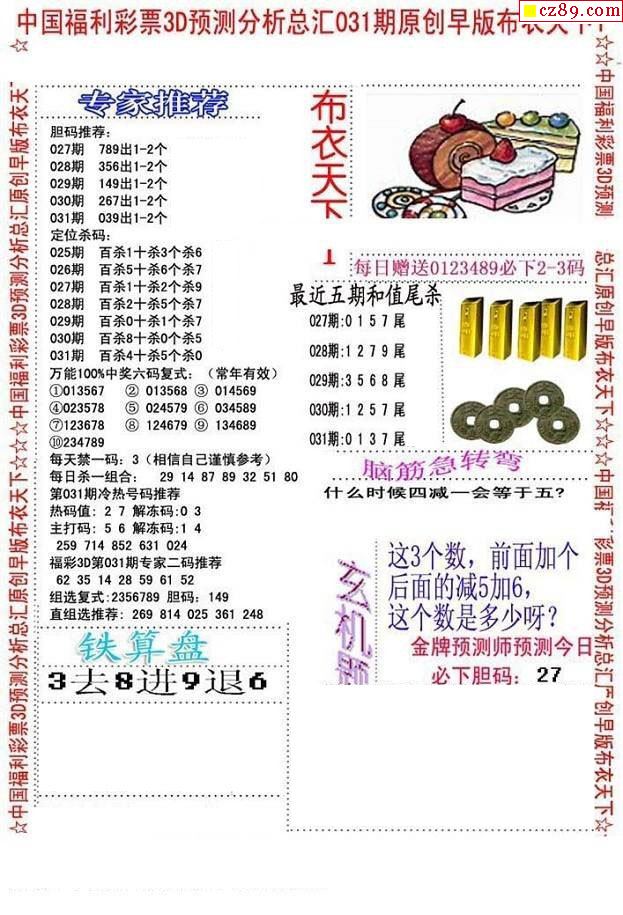 中国福利彩票3D预测分析总汇031期原创早版布衣天下
cz89.com
☆中国福利彩票3D预测分析总汇原创早版布衣天下☆☆☆中国福利彩票3D预测分析总汇原创早版布衣天
专家推荐
胆码推荐:
027期 789出1-2个
028期 356出1-2个
029期 149出1-2个
030期 267出1-2个
031期 039出1-2个
定位杀码:
025期 百杀1十杀3个杀6
026期 百杀5十杀6个杀7
027期 百杀1十杀2个杀9
028期 百杀2十杀5个杀7
029期 百杀0十杀1个杀7
030期 百杀8十杀0个杀5
031期 百杀4十杀5个杀0
万能100%中奖六码复式: (常年有效)
①013567 ② 013568 ③ 014569
④023578 ⑤ 024579 ⑥ 034589
⑦123678 ⑧ 124679 ⑨ 134689
⑩234789
每天禁一码: 3 (相信自己谨慎参考)
每日杀一组合: 29 14 87 89 32 51 80
第031期冷热号码推荐
热码值: 2 7 解冻码:0 3
主打码: 5 6 解冻码:1 4
259 714 852 631 024
福彩3D第031期专家二码推荐
62 35 14 28 59 61 52
组选复式:2356789 胆码: 149
直组选推荐: 269 814 025 361 248
铁算盘
3去8进9退6
布衣天下
每日赠送0123489必下2-3码
最近五期和值尾杀
027期:0 1 5 7 尾
028期:1 2 7 9 尾
029期:3 5 6 8 尾
030期:1 2 5 7 尾
031期:0 1 3 7 尾
脑筋急转弯
什么时候四减一会等于五?
玄机题
这3个数, 前面加个
后面的减5加6,
这个数是多少呀?
金牌预测师预测今日
必下胆码: 27
☆☆中国福利彩票3D预测
总汇原创早版布衣天下☆☆☆中国福
彩票3D预测分析总汇
创早版布衣天下☆